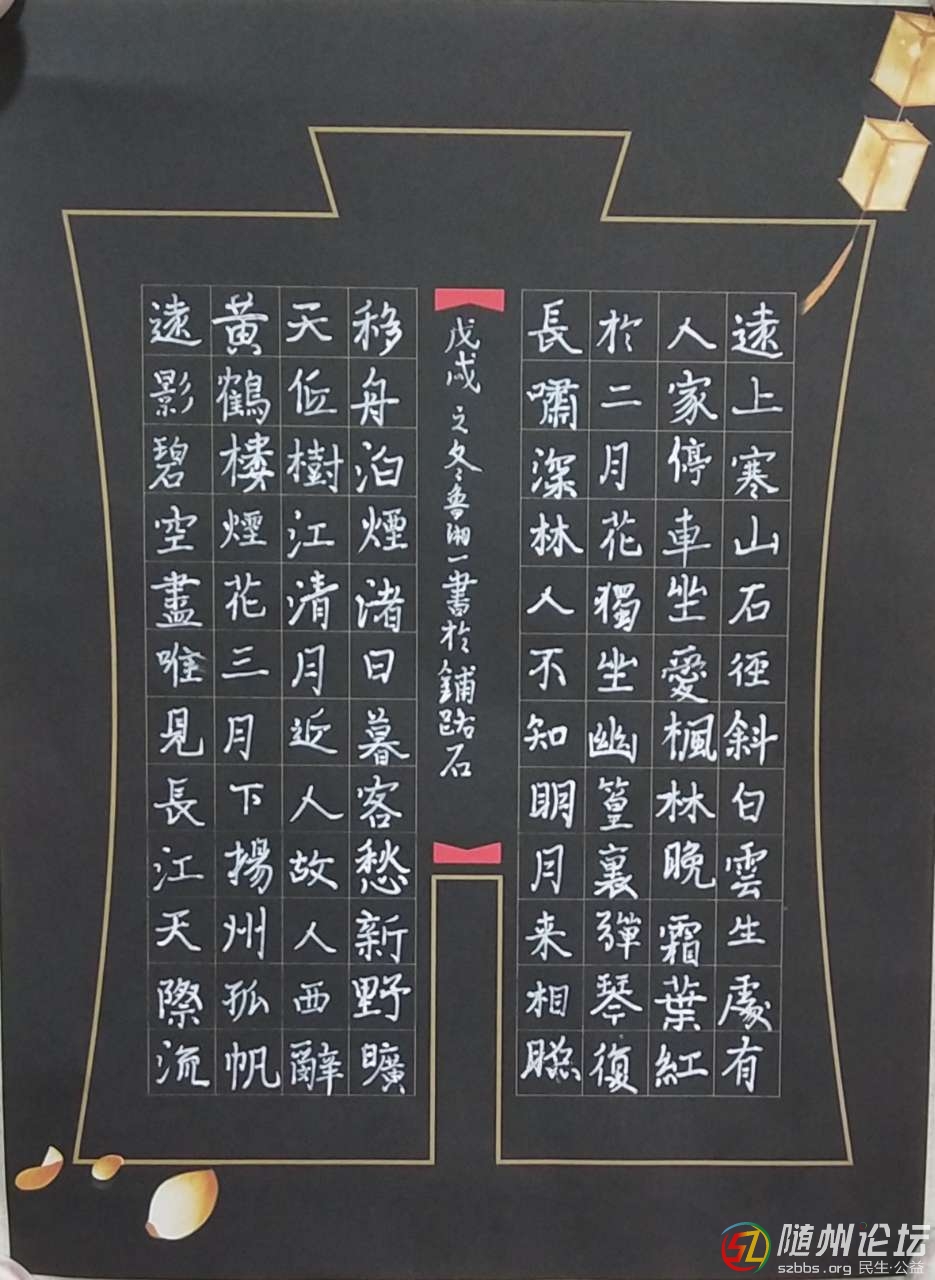 遠上寒山石径斜白雲生處有
人家停車坐愛楓林晚霜葉紅
於二月花獨坐幽篁裏彈琴復
長嘯深林人不知明月来相照
戊戌之冬魯湘一書於鋪路石
移舟泊煙渚日暮客愁新野曠
天低樹江清月近人故人西辭
黄鶴樓煙花三月下揚州孤帆
遠影碧空盡唯見長江天際流
随州论坛
szbbs.org 民生·公益